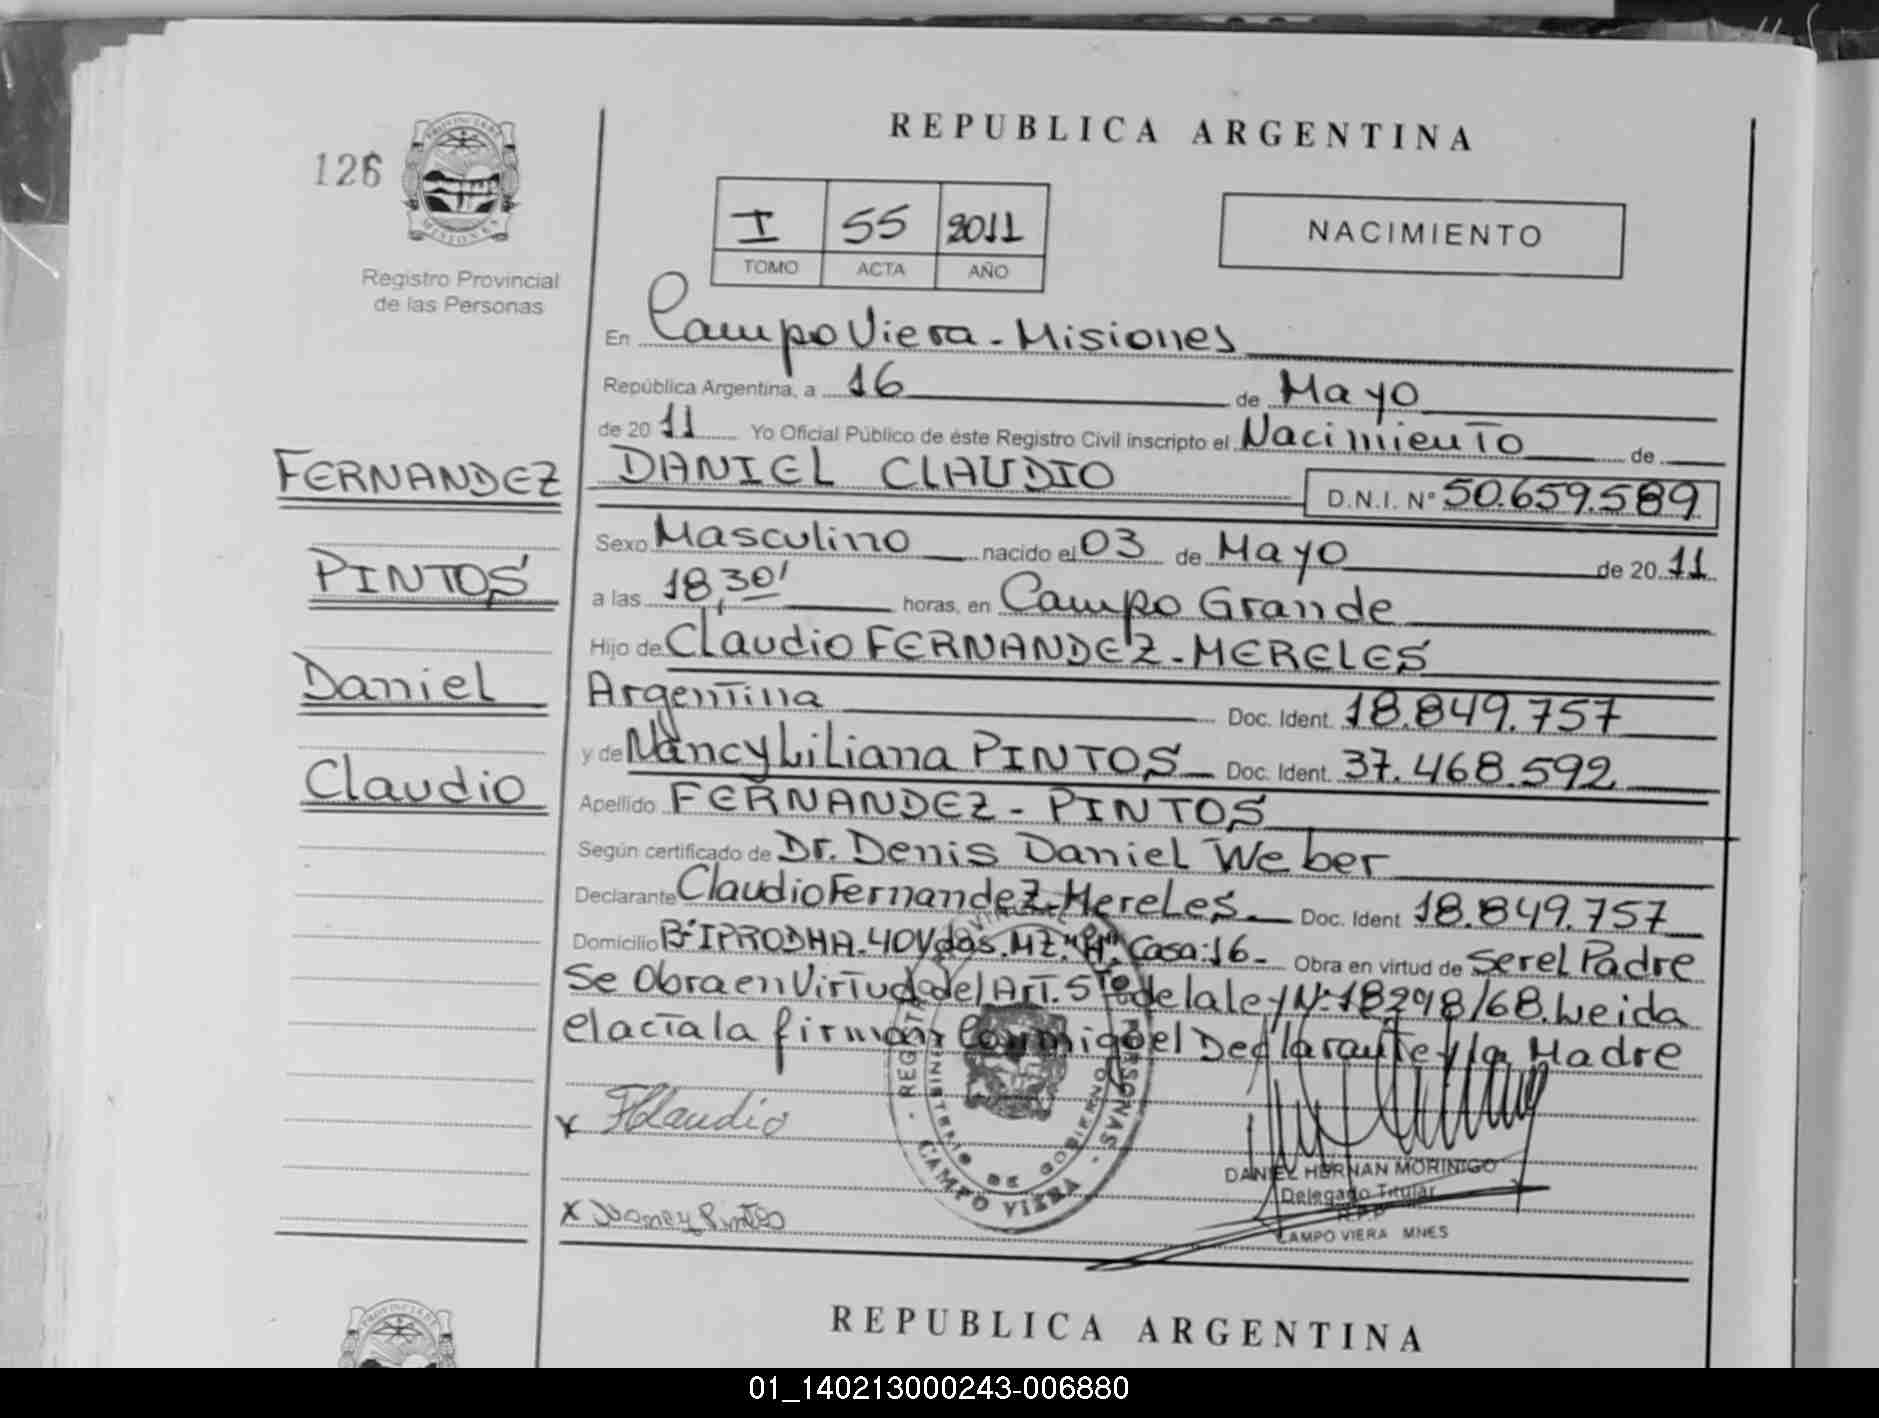 REPUBLICA ARGENTINA
126
PROVINCIA DE
MISIONES
Registro Provincial
de las Personas
I 55 2011
TOMO ACTA AÑO
NACIMIENTO
En Campo Viera - Misiones
República Argentina, a 16 de Mayo
de 2011 Yo Oficial Público de éste Registro Civil inscripto el Nacimiento de
FERNANDEZ
PINTOS
Daniel
Claudio
DANIEL CLAUDIO D.N.I. N° 50.659.589
Sexo Masculino nacido el 03 de Mayo de 2011
a las 18,30' horas, en Campo Grande
Hijo de Claudio FERNANDEZ - MERELES
Argentina Doc. Ident. 18.849.757
y de Nancy Liliana PINTOS Doc. Ident. 37.468.592
Apellido FERNANDEZ - PINTOS
Según certificado de Dr. Denis Daniel Weber
Declarante Claudio Fernandez - Mereles Doc. Ident 18.849.757
Domicilio B° IPRODHA. 40 Vdas. MZ. "H" Casa: 16 - Obra en virtud de Ser el Padre
Se Obra en Virtud del Art. 5to de la ley N° 18248/68. Leida
el acta la firman Conmigo el Declarante y la Madre
x Claudio
x Pintos
REGISTRO PERSONAS
MINISTERIO DE GOBIERNO
CAMPO VIERA
DANIEL HERNAN MORINIGO
Delegado Titular
R.P.P
CAMPO VIERA MNES
REPUBLICA ARGENTINA
01_140213000243-006880